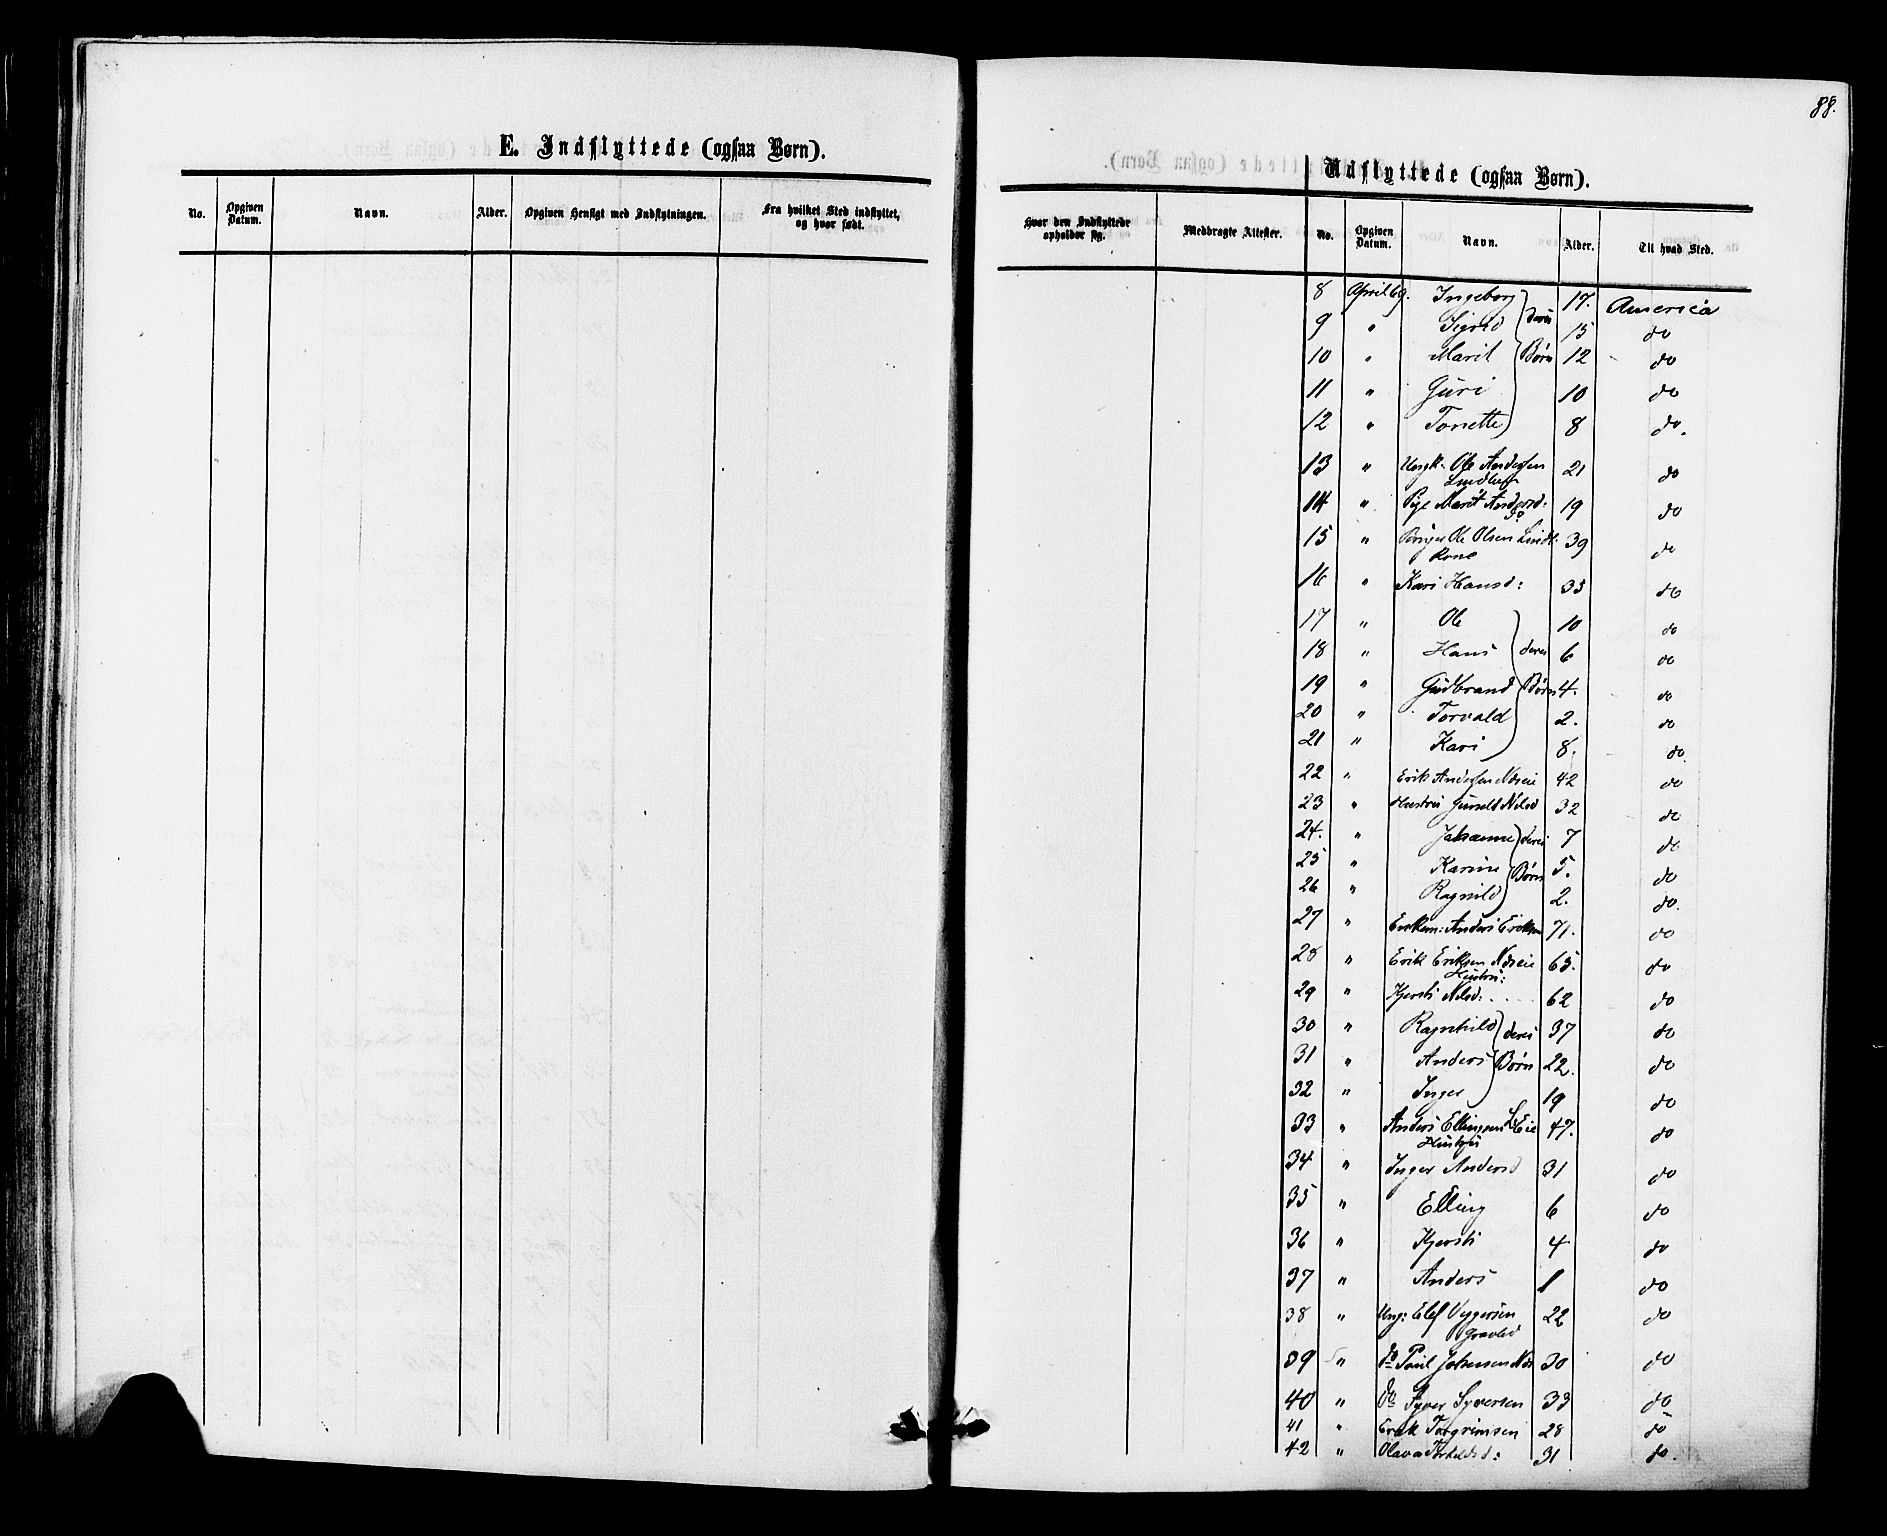 88.
E. Indflyttede (ogsaa Børn).
No. Opgiven Datum. Navn. Alder. Opgiven Hensigt med Indflytningen. Fra hvilket Sted indflyttet, og hvor født.
Udflyttede (ogsaa Børn).
Hvor den Indflyttede opholder sig. Medbragte Attester. No. Opgiven Datum. Navn. Alder. Til hvad Sted.
8 April 69. Ingeborg 17. America
9 " Sigrid deres 15 do
10 " Marit Børn 12 do
11 " Guri 10 do
12 " Tonette 8 do.
13 " Ungk. Ole Andersen 21 do
14 " Pige Marit Andersd: 19 do
do
15 " Ole Olsen Lindl: 39 do
Kone
16 " Kari Hansd: 33 do
17 " Ole 10 do
18 " Hans deres 6 do
19 " Gudbrand Børn 4. do
20 " Torvald 2. do
21 " Kari 8. do.
22 " Erik Andersen Næseie 42 do
23 " Hustru Gunild Nilsd 32 do
24. " Johanne deres 7 do
25 " Karine Børn 5. do
26 " Ragnild 2. do.
27 " Enkem: Anders Eriksen 71. do
28 " Erik Eriksen Næseie 65. do
Hustru:
29 " Kjersti Nilsd: 62 do
30 " Ragnhild deres 37 do
31 " Anders Børn 22. do
32 " Inger 19 do
33 " Anders Ellingsen Eie 47. do
Hustru
34 " Inger Andersd 31 do
35 " Elling 6 do
36 " Kjersti 4 do
37 " Anders 1 do
38 " Ung: Elef 22 do
39 " do Paul Johansen Næs 30 do
40 " do Syver Syversen 33 do
41 " Erik Torgrimsen 28 do
42 " Olava Torkildsd: 31 do.